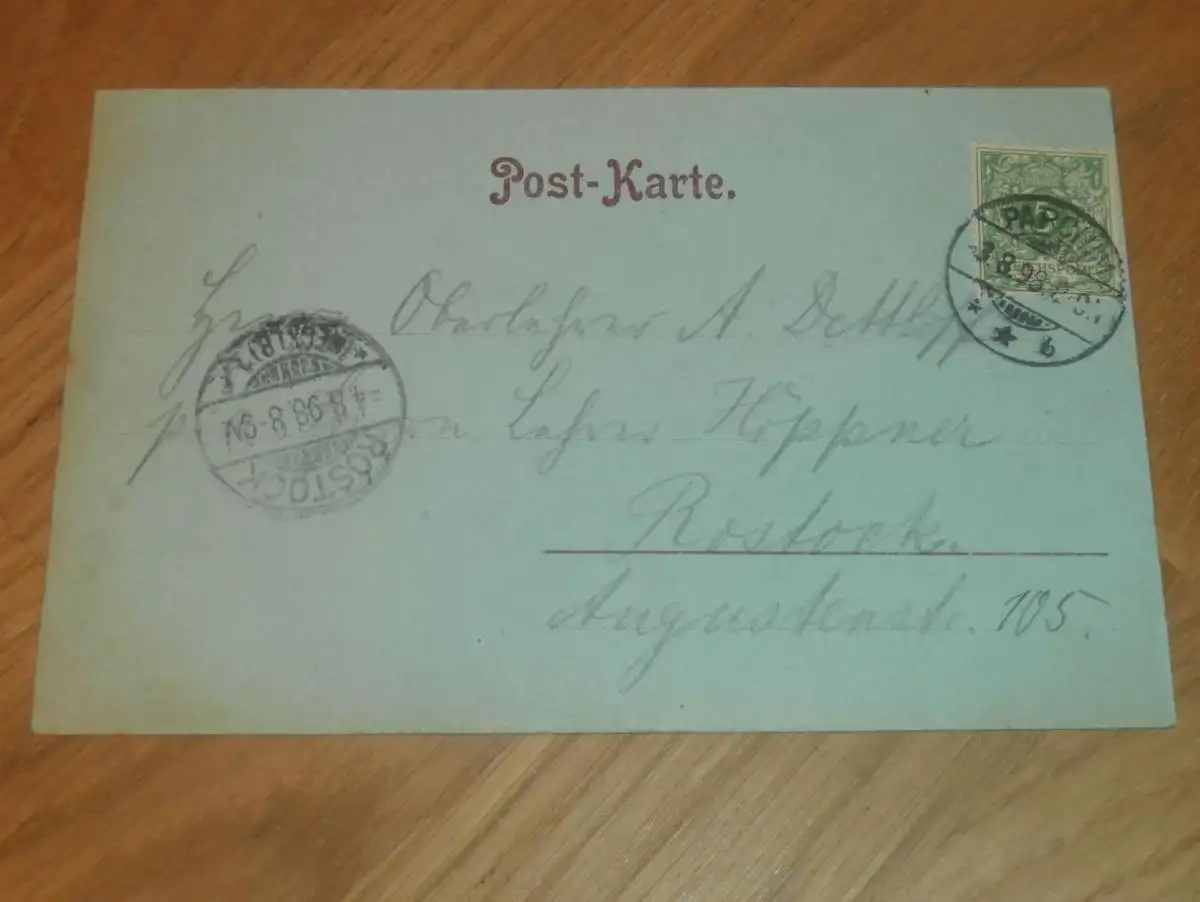 Post-Karte.
REICHSPOST
PARCHIM
3.8.98.
* * b
Herrn Oberlehrer A. Dettloff
Lehrer Höppner
Rostock.
Augustenstr. 105.
ROSTOCK
4.8.98. 8-9V.
(MECKLB) 1